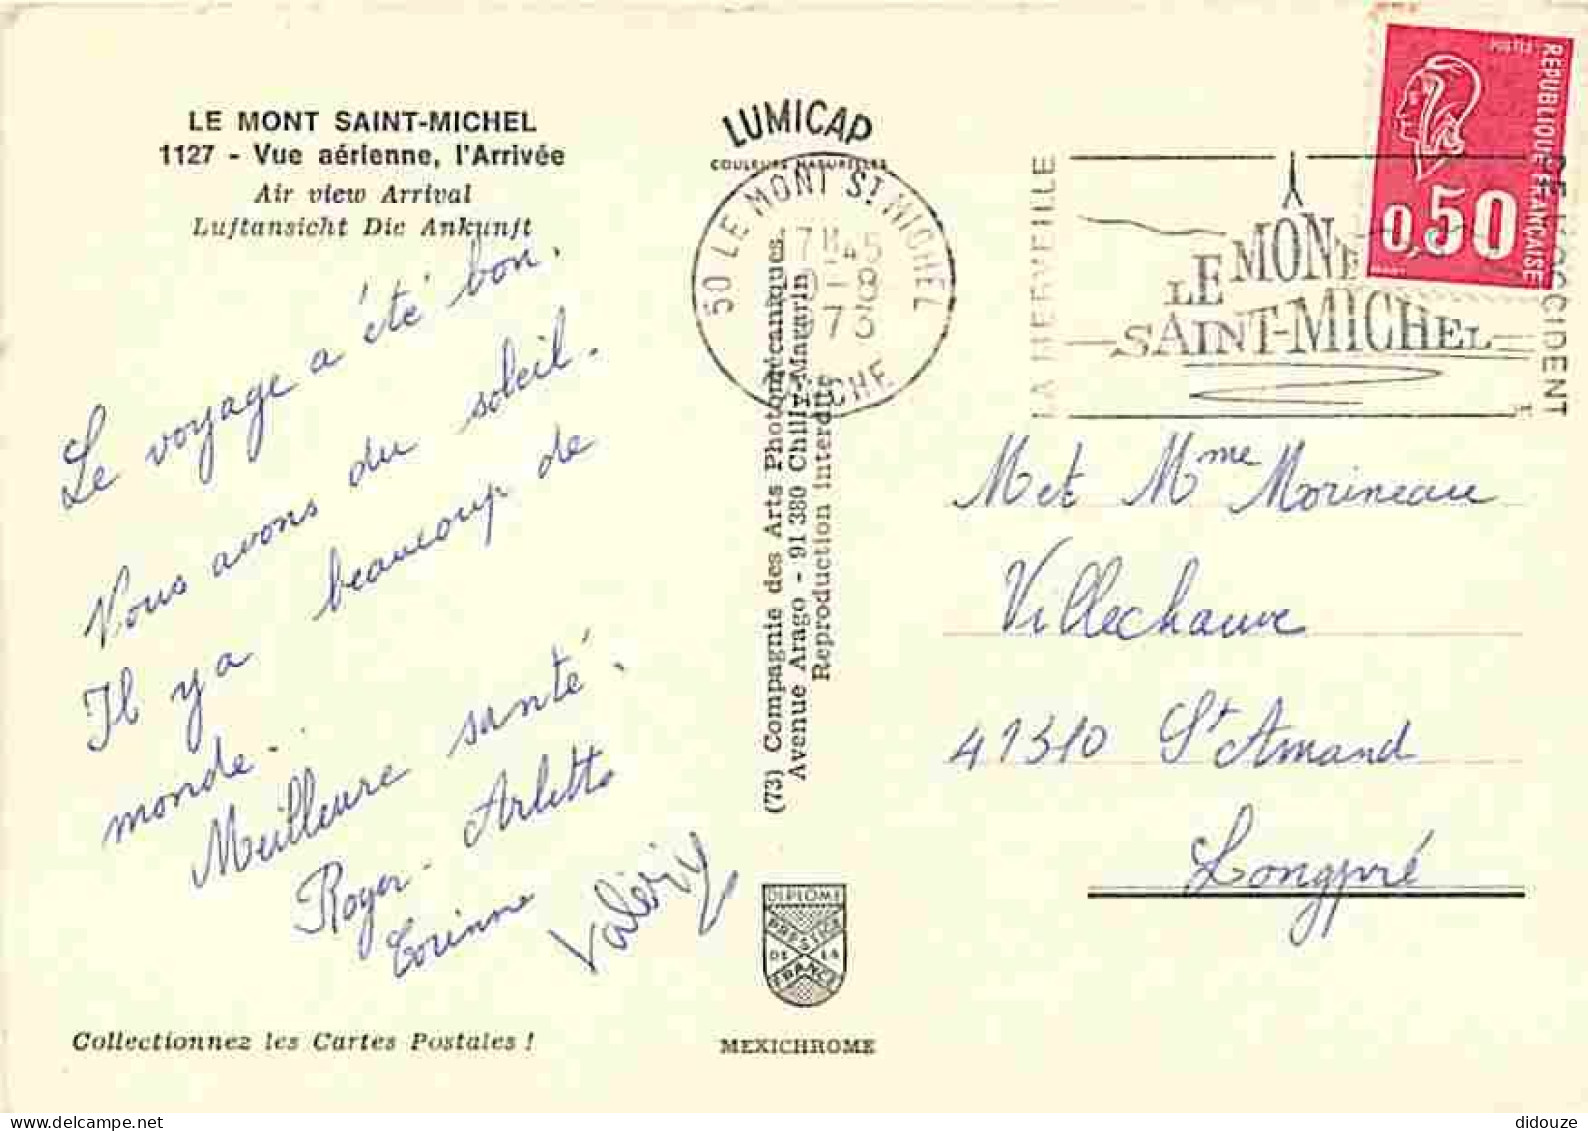 LE MONT SAINT-MICHEL
1127 - Vue aérienne, l'Arrivée
Air view Arrival
Luftansicht Die Ankunft
Le voyage a été bon.
Nous avons du soleil.
Il y a beaucoup de
monde.
Meilleure santé.
Roger - Arlette
Corinne
Valérie
Collectionnez les Cartes Postales !
LUMICAP
COULEURS NATURELLES
50 LE MONT ST MICHEL
17H45
MANCHE
(73) Compagnie des Arts Photomécaniques
Avenue Arago - 91380 Chilly-Mazarin
Reproduction interdite
DIPLOME
PRESTIGE
DE LA
FRANCE
MEXICHROME
LA MERVEILLE
LE MONT
SAINT-MICHEL
DE L'OCCIDENT
POSTES
REPUBLIQUE FRANÇAISE
0,50
M et Mme Morineau
Villechauve
41310 St Amand
Longpré
didouze